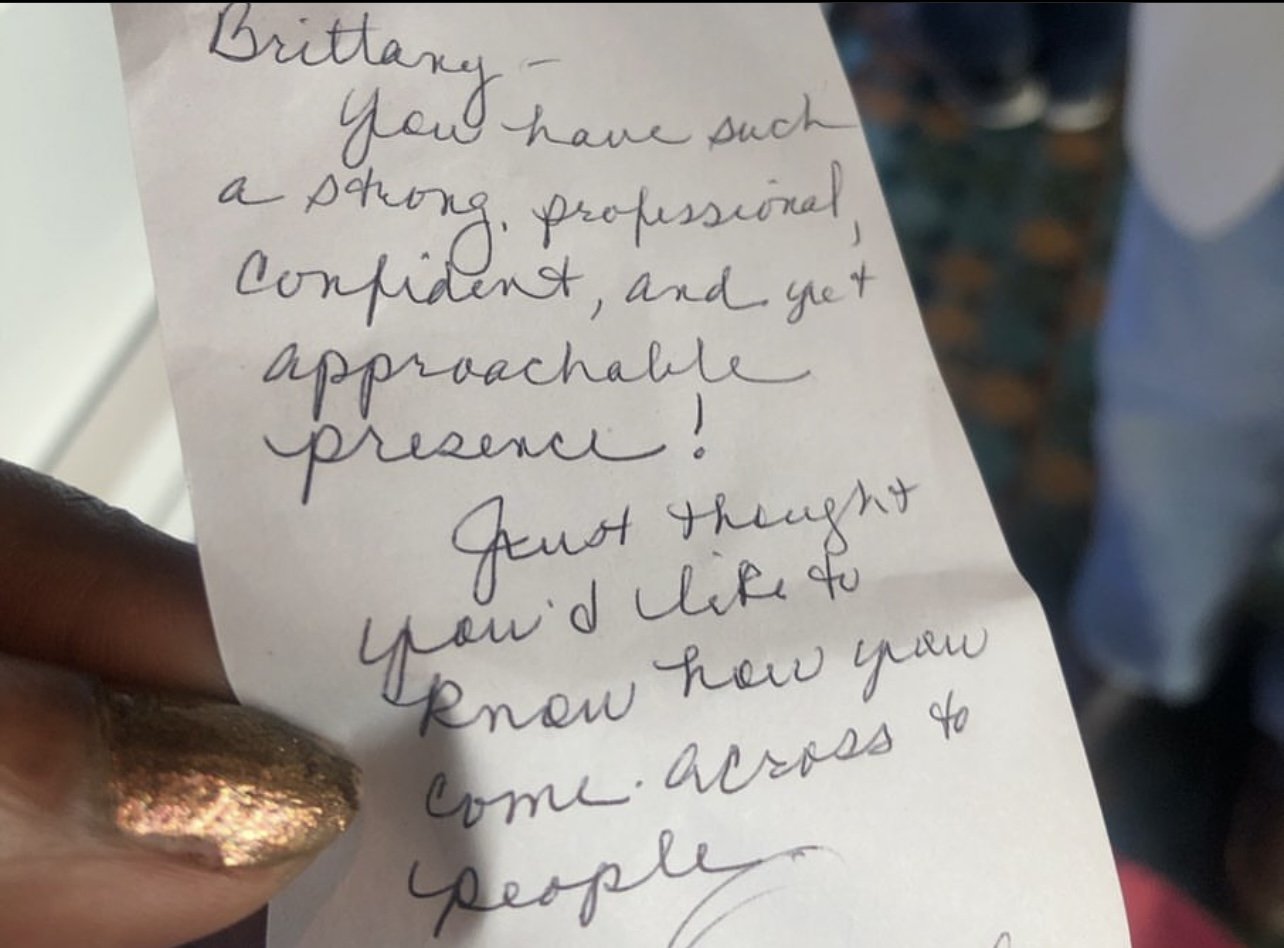 Brittany -
You have such
a strong, professional,
confident, and yet
approachable
presence!
Just thought
you'd like to
know how you
come across to
people